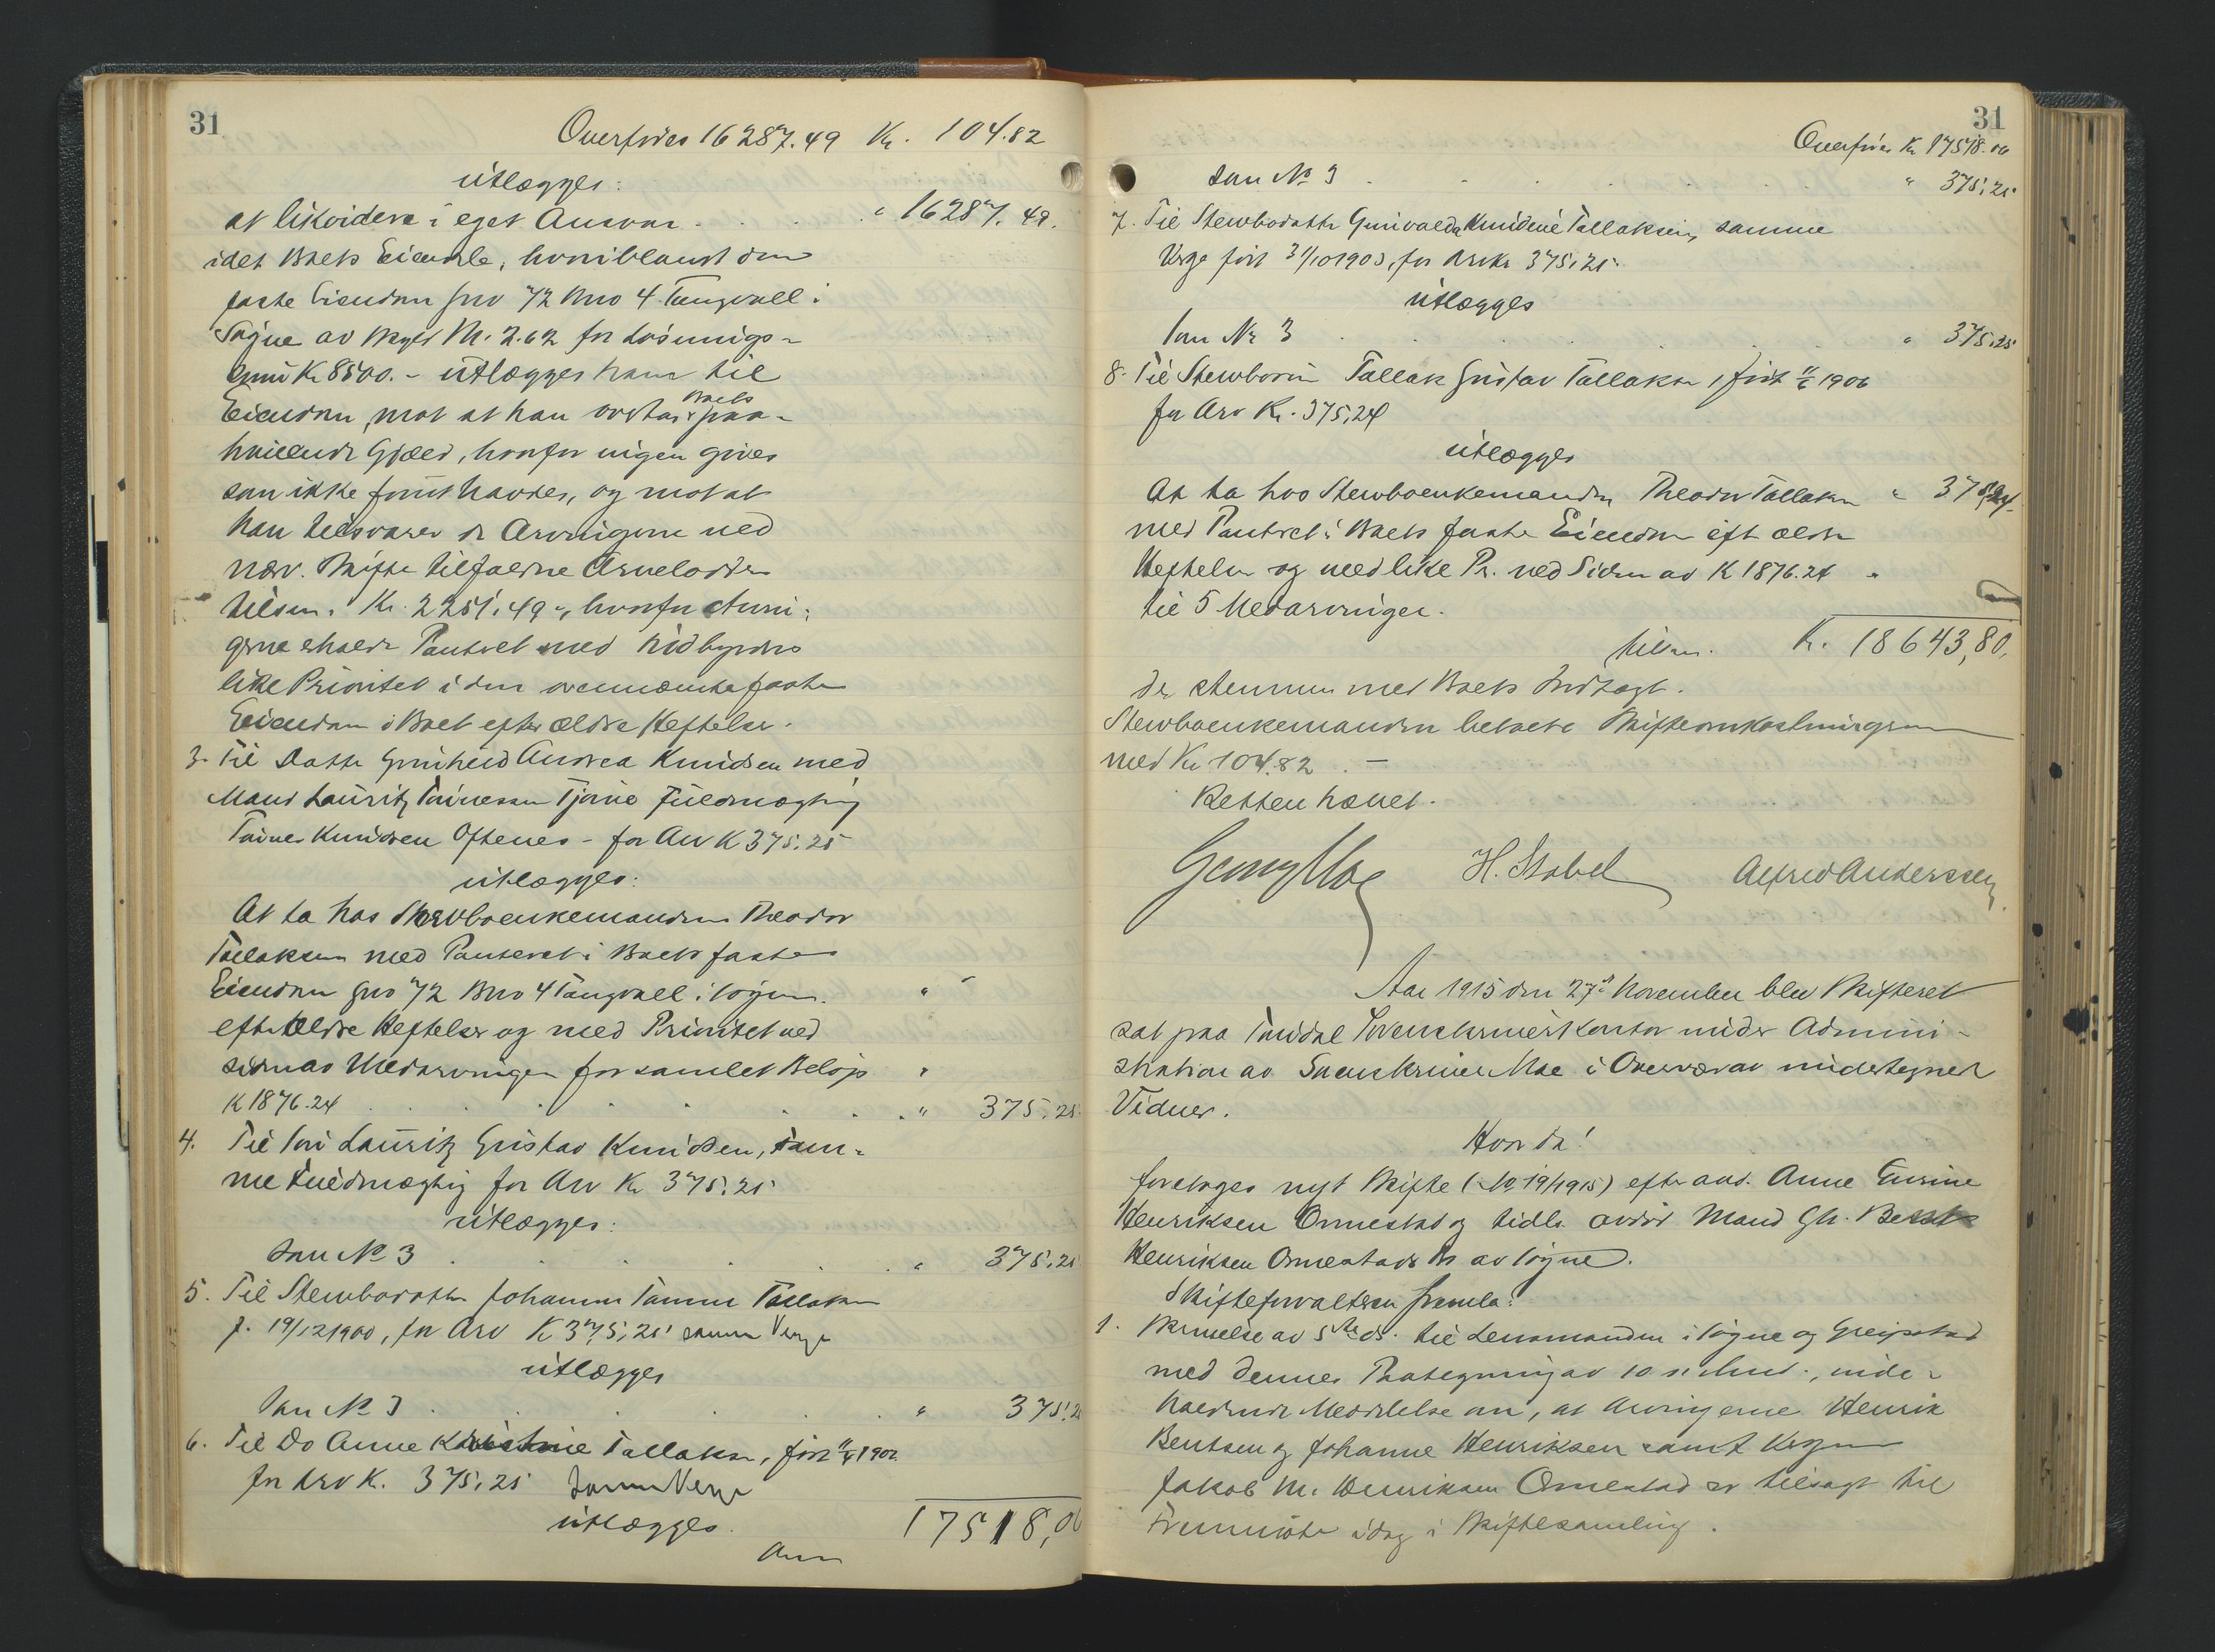 31
Overføres 16287.49 Kr. 104.82
utlægges:
at likvidere i eget Ansvar . . . " 16287.49.
idet Boets Eiendele, hvoriblandt den
faste Eiendom gno 72 bno 4 Tangvall i
Søgne av skyld M. 2.62 for Løsnings-
sum Kr 8500.- utlægges ham til
Eiendom, mot at han overtar Boets paa-
hvilende Gjæld, hvorfor ingen gives
som ikke forut havdes, og mot at
han tilsvarer de Arvingerne ved
nærv. Skifte tilfaldne Arvelodder
tilsm. Kr. 2251.49-, hvorfor Arvin-
gerne erholder Panteret med indbyrdes
like Prioritet i den ovennævnte faste
Eiendom i Boet efter ældre Heftelser.
3. Til Datter Gunhild Andrea Knudsen med
Mand Lauritz Tønnessen Tjomø Fuldmægtig
Tønnes Knudsen Oftenes - for Arv K 375.25
utlægges:
At ta hos Stervboenkemanden Theodor
Tallaksen med Panteret i Boets faste
Eiendom gno 72 Bno 4 Tangvall i Søgne "
efter ældre Heftelser og med Prioritet ved
siden av Medarvinger for samlet Beløp "
K 1876.24 . . . . " 375.25
4. Til Søn Lauritz Gustav Knudsen, sam-
me Fuldmægtig for Arv Kr 375.25
utlægges:
Som No 3 . . . . " 375.25
5. Til Stervbodatter Johanne Tomine Tallaksen
f. 19/12 1900, for Arv K 375,25 samme Verge
utlægges
Som No 3 . . . . " 375.2
6. Til Do Anne Kristine Tallaksen, født 1902
for Arv K. 375,25 samme Verge
utlægges.
17518,06
31
Overføres Kr 17518.06
Som No 3 . . . . " 375,25
7. Til Stervbodatter Gunvalda Knudine Tallaksen, samme
Verge født 31/10 1903, for Arv Kr 375,25.
utlægges
Som Nr 3 . . . . " 375,25
8. Til Stervbosøn Tallak Gustav Tallaksen, født 1906
for Arv Kr. 375,24
utlægges
At ta hos Stervboenkemanden Theodor Tallaksen " 375,24
med Panteret i Boets faste Eiendom efter ældre
Heftelser og med like Pr. ved Siden av K 1876.24 "
til 5 Medarvinger.
tilsm. Kr. 18643,80.
der stemmer med Boets Indtægt.
Stervboenkemanden betalte Skifteomkostningerne
med Kr 104.82 . -
Retten hævet.
Georg Moe H. Stabel Alfred Anderssen
Aar 1915 den 27de November blev Skifteret
sat paa Torridal Sorenskriverkontor under Admini-
stration av Sorenskriver Moe i Overvær av undertegnede
Vidner.
Hvor da!
foretoges nyt Skifte (No 19/1915) efter avd. Anne Gurine
Henriksen Ormestad og tidl. avdød Mand Gh. Bent
Henriksen Ormestads Bo av Søgne.
Skifteforvalteren fremla:
1. Skrivelse av 5te ds. til Lensmanden i Søgne og Greipstad
med dennes Paategning av 10 s. Md., inde-
holdende Meddelelse om, at Arvingerne Henrik
Bentsen og Johanne Henriksen samt Vergen
Jakob M. Henriksen Ormestad er tilsagt til
Fremmøte idag i Skiftesamling.